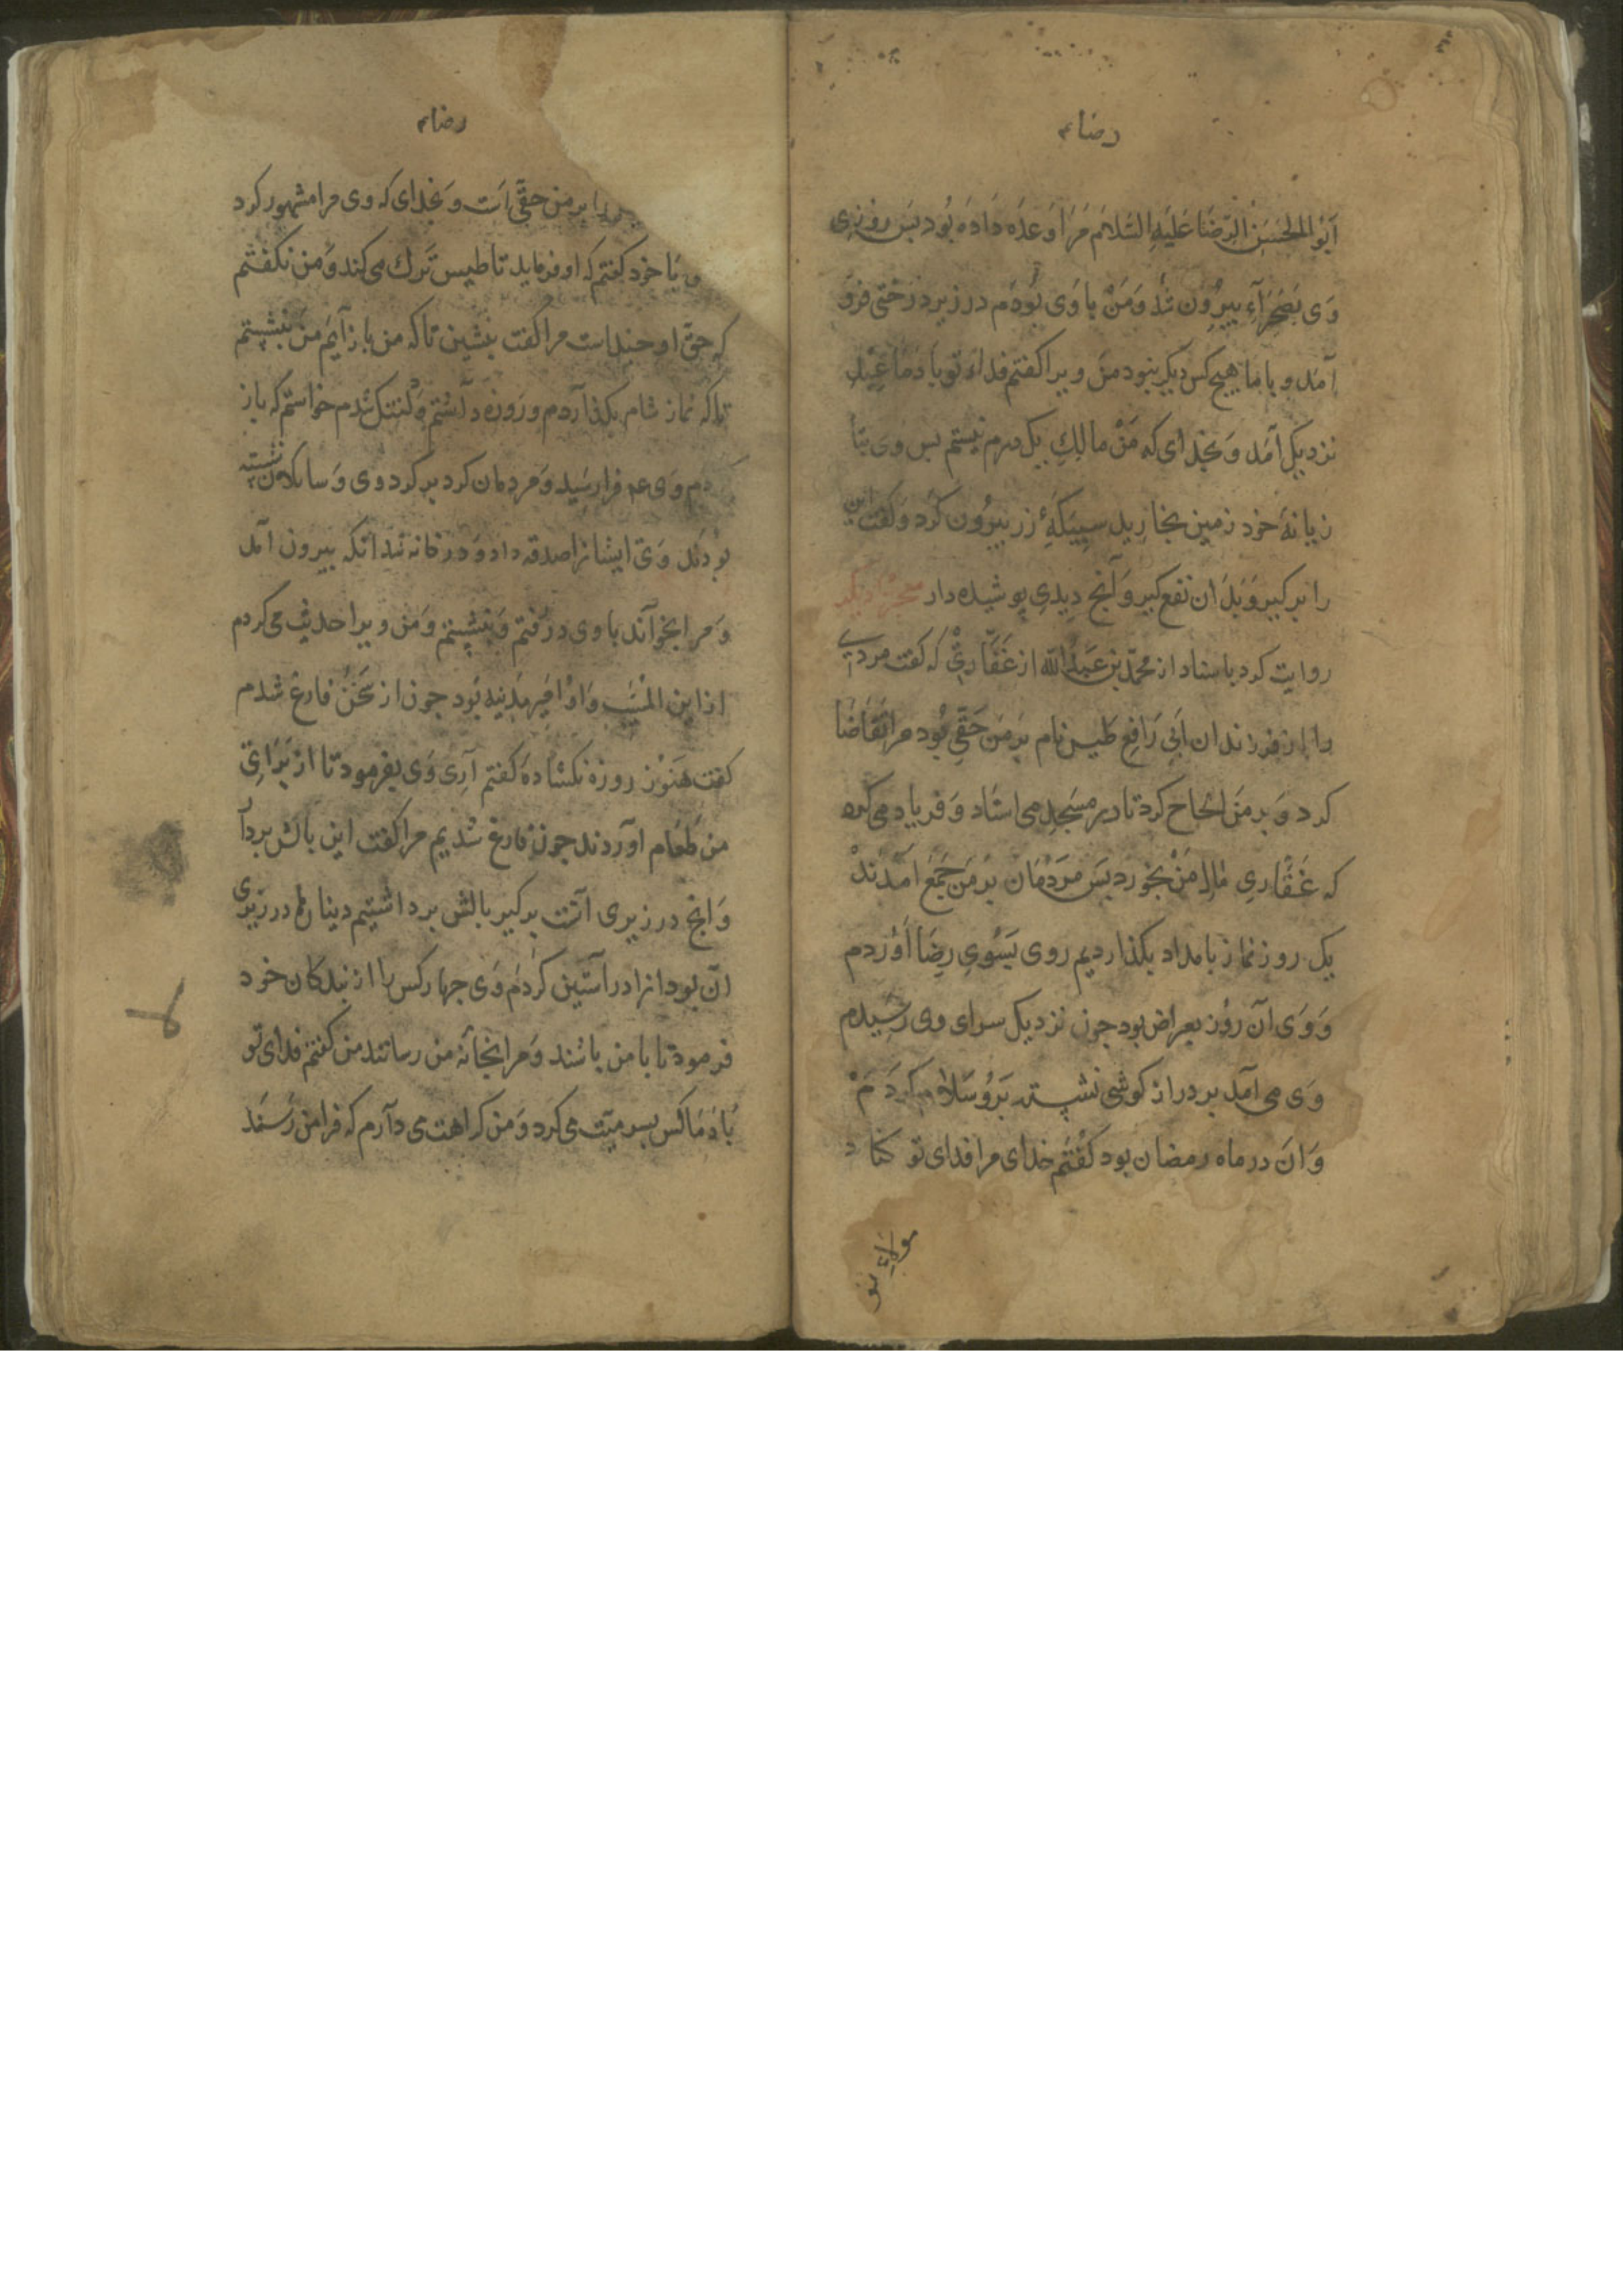 رضا ع
اَبُو الحَسَنِ الرِّضَا عَلَيْهِ السَّلامُ مَرَا وَعْدَه دَادَه بُود بَس رُوزِی
وَی بَصَحْرَآء بِیرُون شُد وَمَنْ با وَی بُودَم در زیر درختی فرو
آمد و با ما هیچ کس دیکر نبود من ویرا کفتم فداء تو بادم ما عید
نزدیک آمد وَ بخدای که مَنْ مالِكِ یك درم نیستم بس وی بتا
زیانهٔ خود زمین بخارید سبیکهٔ زر بیرُون کَرد وَ کفت این
را بر کیر وَ بدان نفع کیر وَ آنچ دِیدِی پوشیده دار معجزهٔ دیکر
روایت کرد باسناد از محمّد بن عَبدُالله از غَفَّارِیّ که کفت مردی
را از فرزندان اَبی رَافِع طیس نام بَر من حَقّی بُود مرا تقاضا
کرد وَ بر مَن اِلحاح کرد تا در مسجد می استاد وَ فریاد می کرد
که غَفَّارِی مال مَنْ بخورد بَس مَردُمَان بَر مَن جَمْع آمَدَندْ
یك روز نماز بامداد بکذاردیم روی بَسُوی رِضَا آوُردم
وَ وَی آن رُوز بعراض بود جون نزدیک سرای وی رَسِیدم
وَی می آمد بر دراز کوشی نشسته بَرو سَلام کردَمْ
وَ انَ در ماه رمضان بود کفتم خدای مرا فدای تو کناد
مولای تو
رضا ع
را بر من حقّی است وَ بخدای که وی مرا مشهور کرد
و با خود کفتم که او فرماید تا طیس ترك می کند وَ من نکفتم
که حقّ او چندست مرا کفت بنشین تا که من باز آیم من بنشستم
تا که نماز شام بکذاردم و روزه داشتم وَ تنگ شدم خواستم که باز
کردم وَی ع فرا رسید وَ مردمان کرد بر کرد وی وَ سایلان نشسته
بودند وَی ایشانرا صدقه داد وَ در خانه شد آنکه بیرون آمد
وَ مرا بخواند با وی در رفتم وَ بنشستم وَ من ویرا حدیث می کردم
از ابن المُسَیّب وَ اوْ امیر مدینه بُود جون از سَخَنْ فارغ شدم
کفت هَنُوز روزه نکشادهٔ کفتم آرِی وَی بفرمود تا از بَرایِ
من طَعَام آوردند جون فارغ شدیم مرا کفت این بالش بردار
وَ انچ در زیری آنست بر کیر بالش برداشتیم دینارها در زیری
ان بود انرا در آستین کردم وَی جهار کس را از بندکان خود
فرمود تا با من باشند وَ مرا بخانهٔ من رسانند من کفتم فدای تو
بادم عَسَس می کرد وَ من کراهت می دارم که فرا من رَسَند